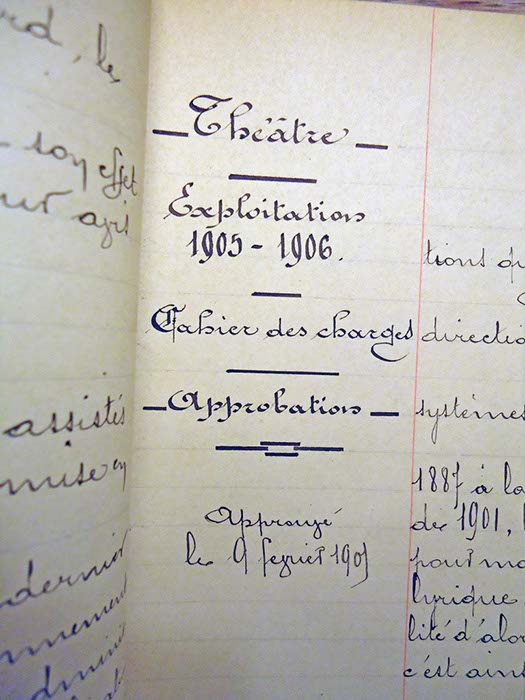 son effet
assistés
mise en
Théâtre
Exploitation
1905 - 1906.
Cahier des charges
Approbation
Approuvé
le 9 février 1905
tions
directio
systèmes
1887 à la
de 1901, l
pour mo
lyrique
lité d'alor
c'est ains